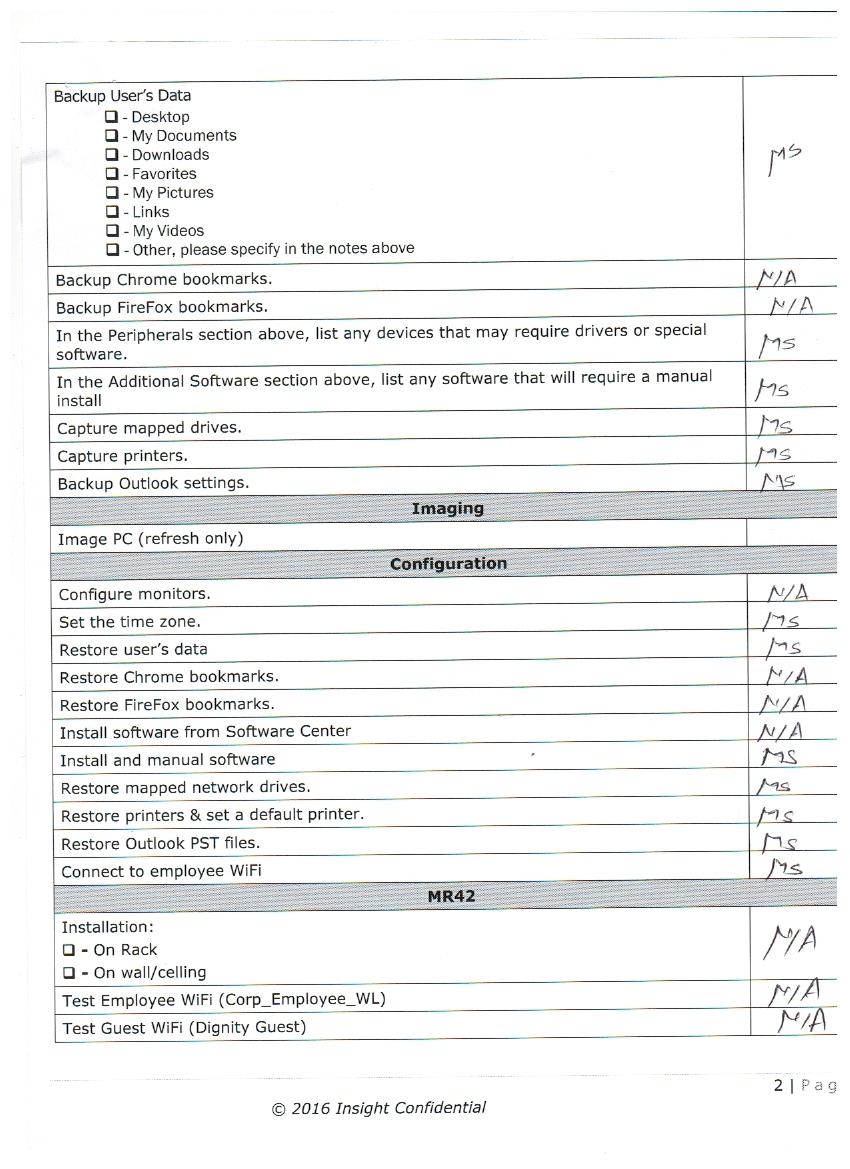 Backup User's Data
❑ - Desktop
❑ - My Documents
❑ - Downloads
❑ - Favorites
❑ - My Pictures
❑ - Links
❑ - My Videos
❑ - Other, please specify in the notes above
MS
Backup Chrome bookmarks. N/A
Backup FireFox bookmarks. N/A
In the Peripherals section above, list any devices that may require drivers or special
software. MS
In the Additional Software section above, list any software that will require a manual
install MS
Capture mapped drives. MS
Capture printers. MS
Backup Outlook settings. MS
Imaging
Image PC (refresh only)
Configuration
Configure monitors. N/A
Set the time zone. MS
Restore user's data MS
Restore Chrome bookmarks. N/A
Restore FireFox bookmarks. N/A
Install software from Software Center N/A
Install and manual software MS
Restore mapped network drives. MS
Restore printers & set a default printer. MS
Restore Outlook PST files. MS
Connect to employee WiFi MS
MR42
Installation:
❑ - On Rack
❑ - On wall/celling
N/A
Test Employee WiFi (Corp_Employee_WL) N/A
Test Guest WiFi (Dignity Guest) N/A
2 | Pag
© 2016 Insight Confidential